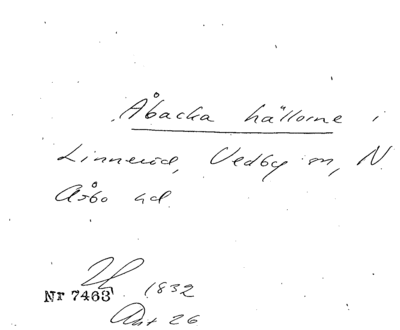 Åbacka hällorne i
Linneröd, Vedby sn, N
Åsbo hd.
1832
Nr 7463
Ant 26